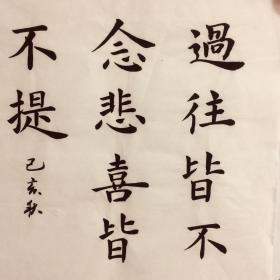 過往皆不
念悲喜皆
不提
己亥秋